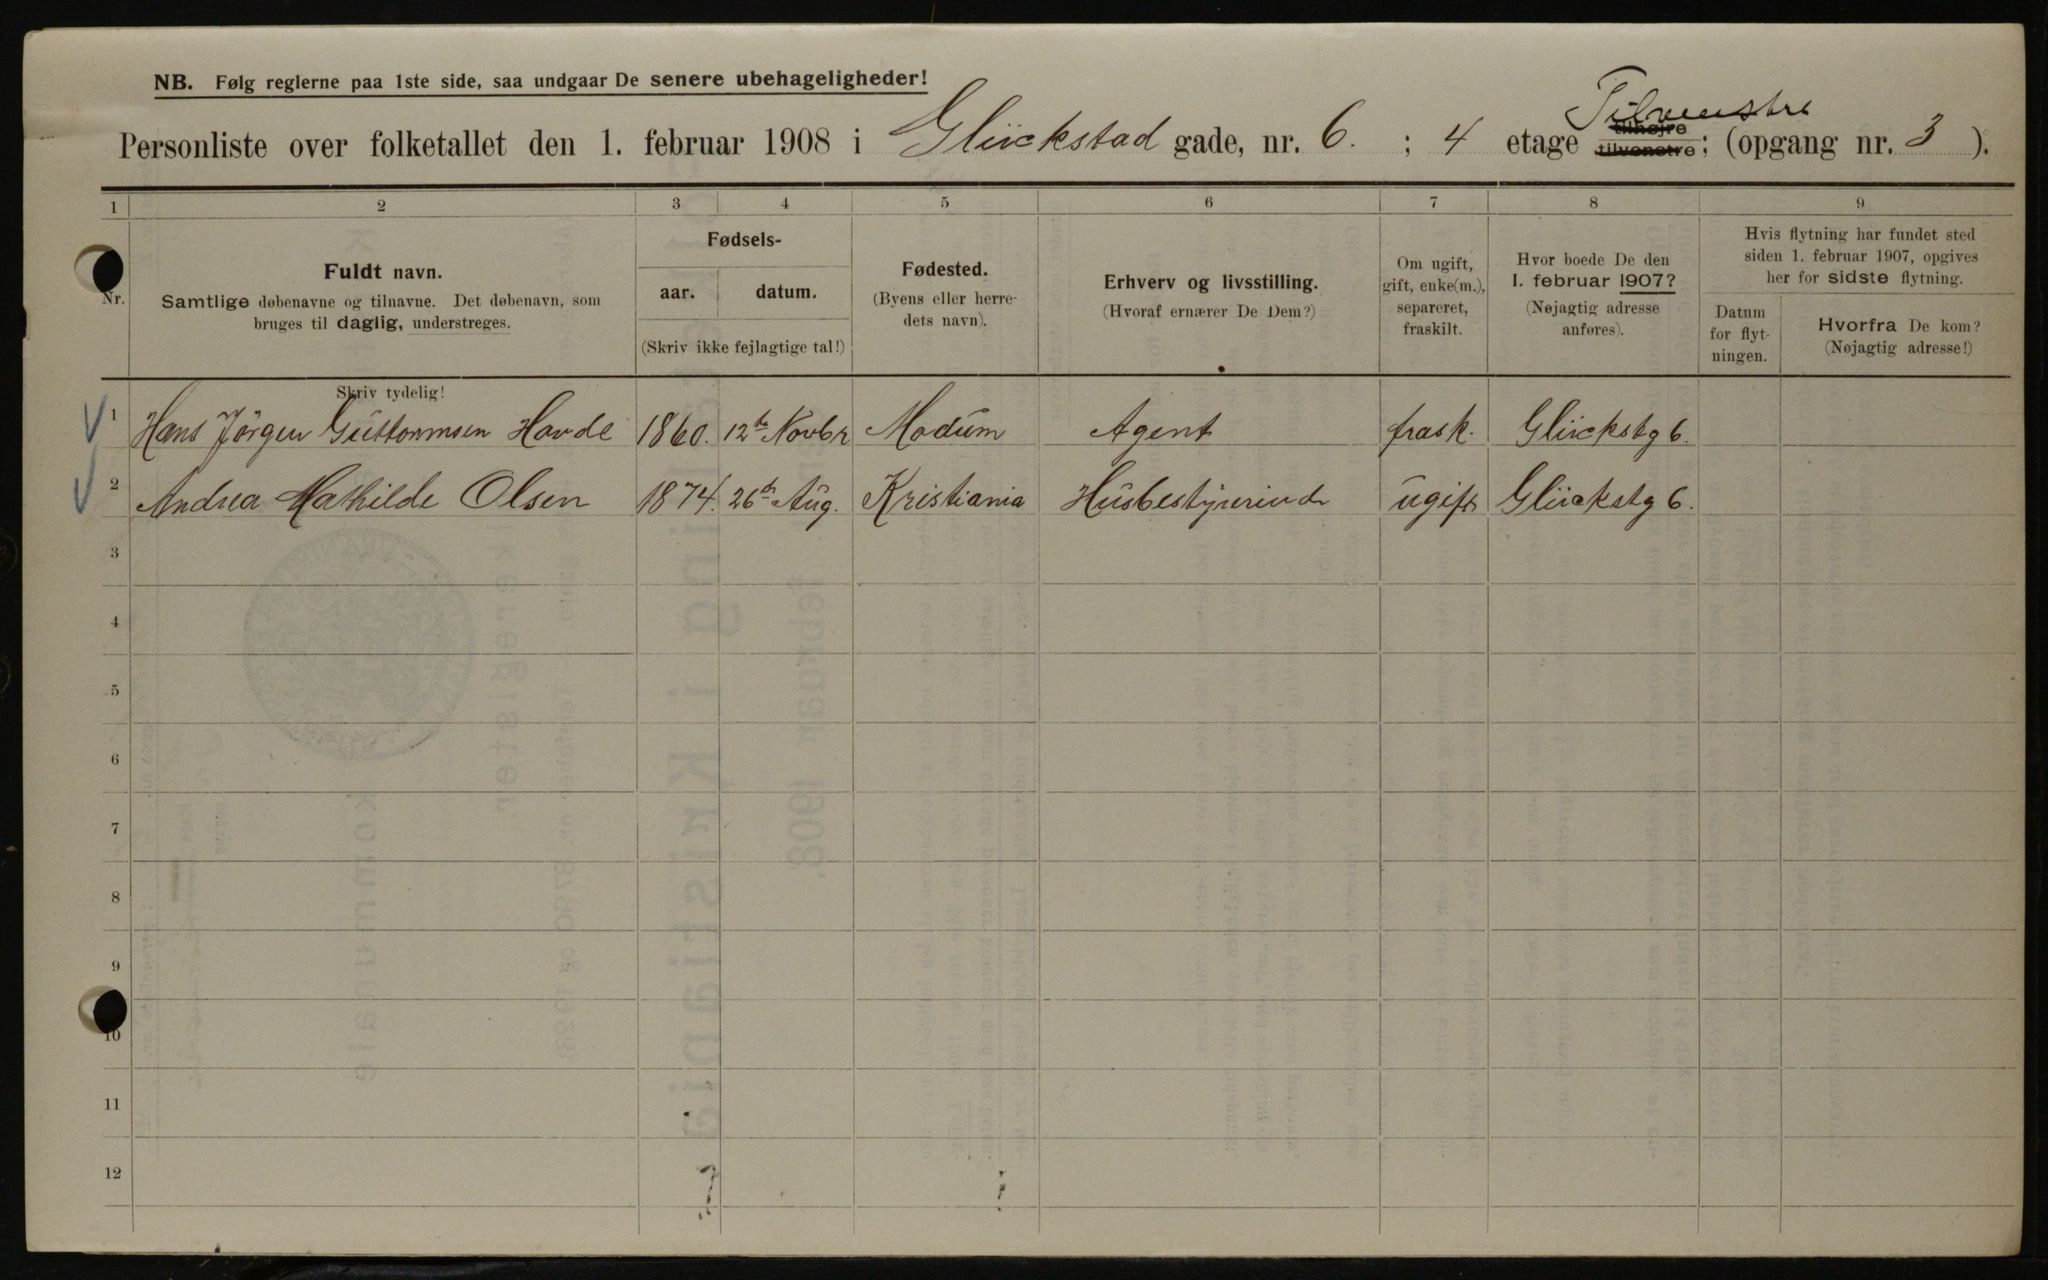 NB. Følg reglerne paa 1ste side, saa undgaar De senere ubehageligheder!
Tilvenstre
Personliste over folketallet den 1. februar 1908 i Glückstad gade, nr. 6. ; 4 etage tilhøjre tilvenstre; (opgang nr. 3 ).
1 2 3 4 5 6 7 8 9
Nr.
Fuldt navn.
Samtlige døbenavne og tilnavne. Det døbenavn, som
bruges til daglig, understreges.
Skriv tydelig!
Fødsels-
aar. datum.
(Skriv ikke fejlagtige tal!)
Fødested.
(Byens eller herre-
dets navn).
Erhverv og livsstilling.
(Hvoraf ernærer De Dem?)
Om ugift,
gift, enke(m.),
separeret,
fraskilt.
Hvor boede De den
1. februar 1907?
(Nøjagtig adresse
anføres).
Hvis flytning har fundet sted
siden 1. februar 1907, opgives
her for sidste flytning.
Datum
for flyt-
ningen.
Hvorfra De kom?
(Nøjagtig adresse!)
1 Hans Jörgen Havde 1860. 12te Novbr Modum Agent frask. Glückstg 6.
2 Andrea Mathilde Olsen 1874. 26de Aug. Kristiania Husbestyrerinde ugift Glückstg 6.
3
4
5
6
7
8
9
10
11
12